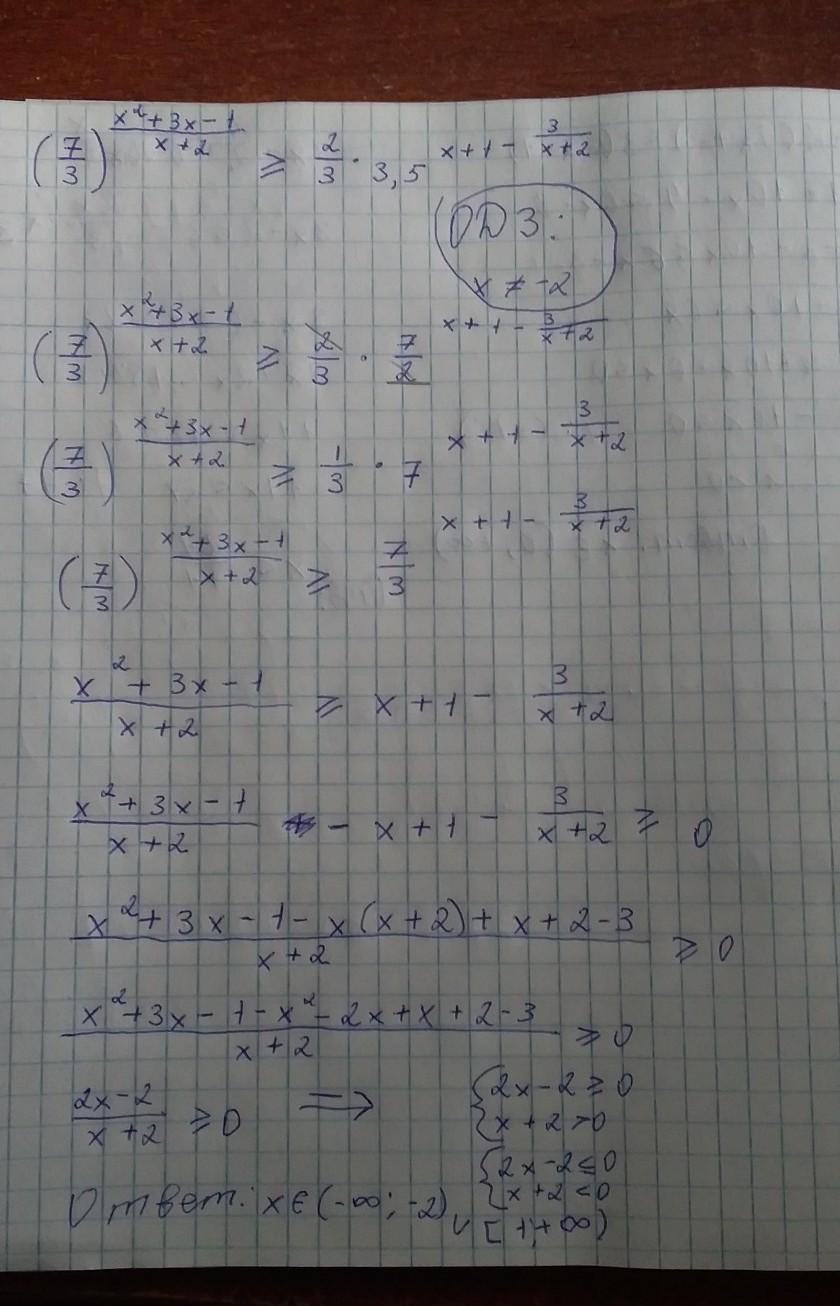 (7/3)^((x²+3x-1)/(x+2)) ≥ 2/3 · 3,5^(x+1-3/(x+2))
ОДЗ:
x ≠ -2
(7/3)^((x²+3x-1)/(x+2)) ≥ 2/3 · 7/2^(x+1-3/(x+2))
(7/3)^((x²+3x-1)/(x+2)) ≥ 1/3 · 7^(x+1-3/(x+2))
(7/3)^((x²+3x-1)/(x+2)) ≥ 7/3^(x+1-3/(x+2))
(x²+3x-1)/(x+2) ≥ x+1-3/(x+2)
(x²+3x-1)/(x+2) - x+1-3/(x+2) ≥ 0
(x²+3x-1-x(x+2)+x+2-3)/(x+2) ≥ 0
(x²+3x-1-x²-2x+x+2-3)/(x+2) ≥ 0
(2x-2)/(x+2) ≥ 0 ⇒ {2x-2 ≥ 0
{x+2 >0
{2x-2 ≤ 0
{x+2 <0
Ответ: x∈(-∞; -2) ∪ [1;+∞)